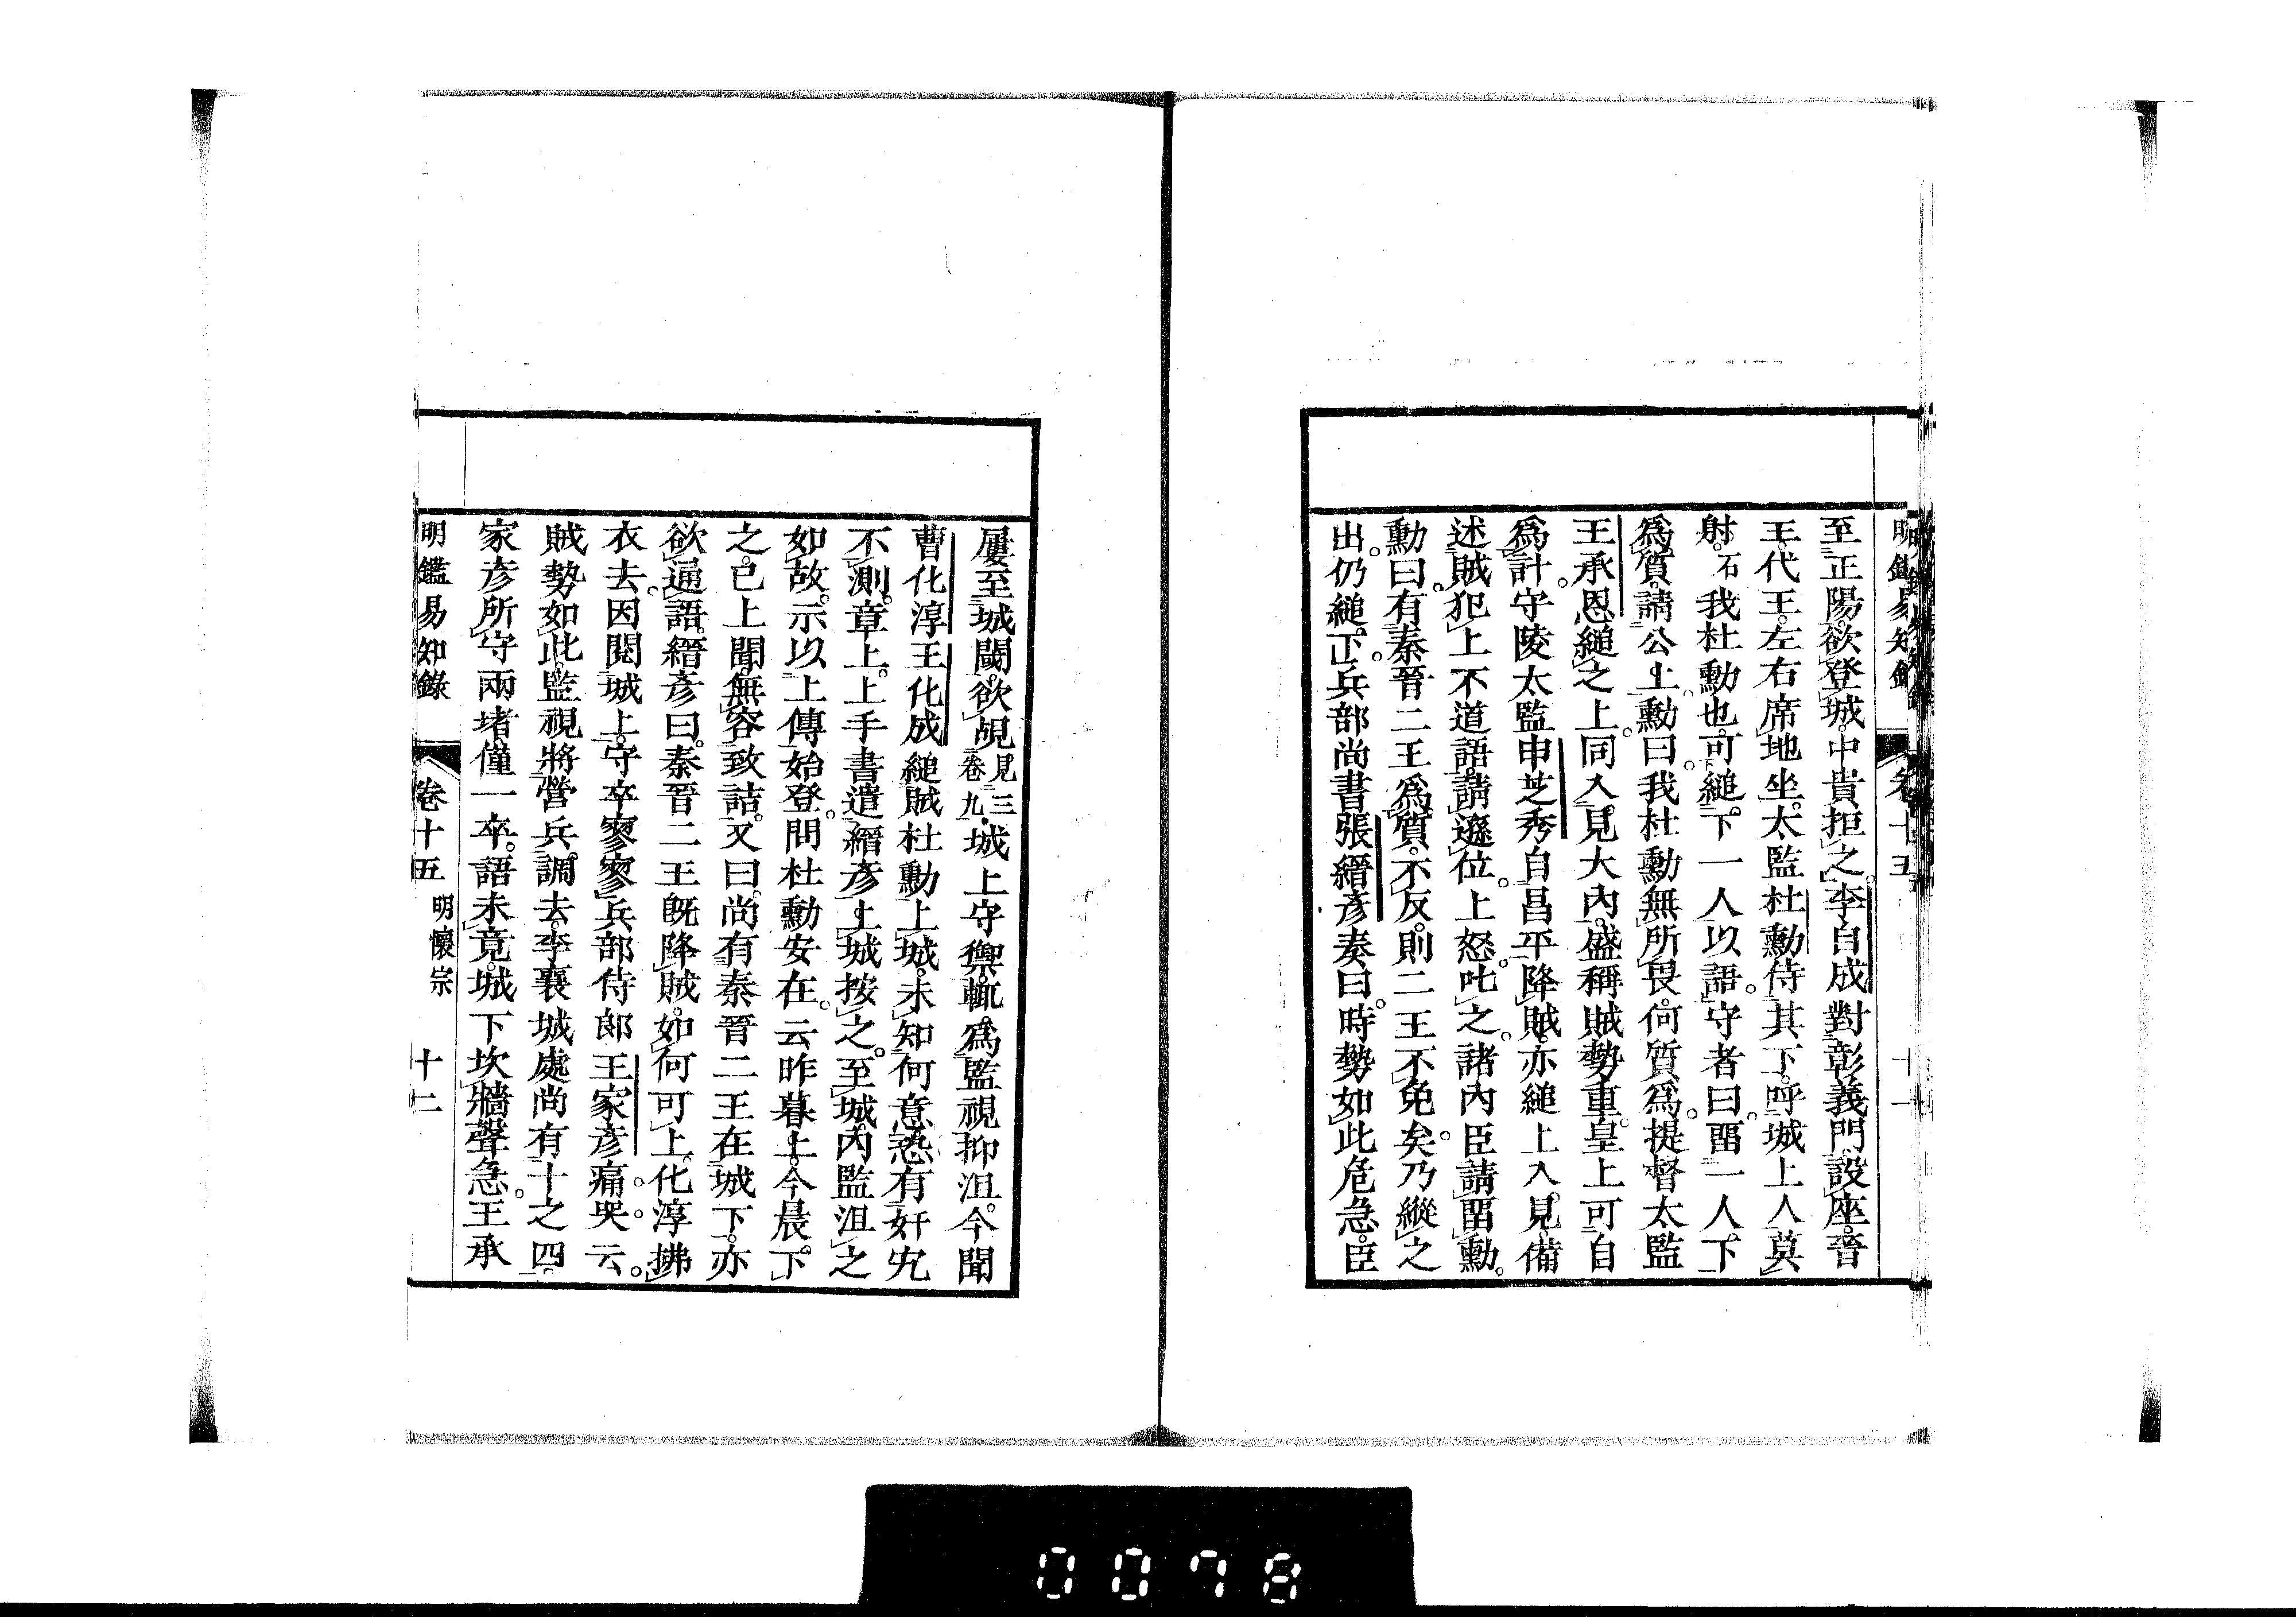 明鑑易知錄 卷十五 十一
至正陽。欲登城。中貴拒之。李自成對彰義門設座。晉
王代王。左右席地坐。太監杜勳侍其下。呼城上人莫
射。石我杜勳也。可縋下一人以語。守者曰。畱一人下
爲質。請公上。勳曰。我杜勳無所畏。何質爲。提督太監
王承恩縋之上。同入見大內。盛稱賊勢重。皇上可自
爲計。守陵太監申芝秀自昌平降賊。亦縋上入見。備
述賊犯上不道語。請遜位。上怒叱之。諸內臣請畱勳。
勳曰。有秦晉二王爲質。不反。則二王不免矣。乃縱之
出。仍縋下。兵部尚書張縉彥奏曰。時勢如此危急。臣
屢至城闉。欲覘見三卷九城上守禦。輒爲監視抑沮。今聞
曹化淳王化成縋賊杜勳上城。未知何意。恐有奸宄
不測。章上。上手書遣縉彥上城按之。至城。內監沮之
如故。示以上傳始登。問杜勳安在。云昨暮上。今晨下
之。已上聞。無容致詰。又曰。尚有秦晉二王在城下。亦
欲通語。縉彥曰。秦晉二王旣降賊。如何可上。化淳拂
衣去。因閱城上。守卒寥寥。兵部侍郎王家彥痛哭云。
賊勢如此。監視將營兵調去。李襄城處尚有十之四。
家彥所守兩堵。僅一卒。語未竟。城下坎牆聲急。王承
明鑑易知錄 卷十五 明懷宗 十二
0078